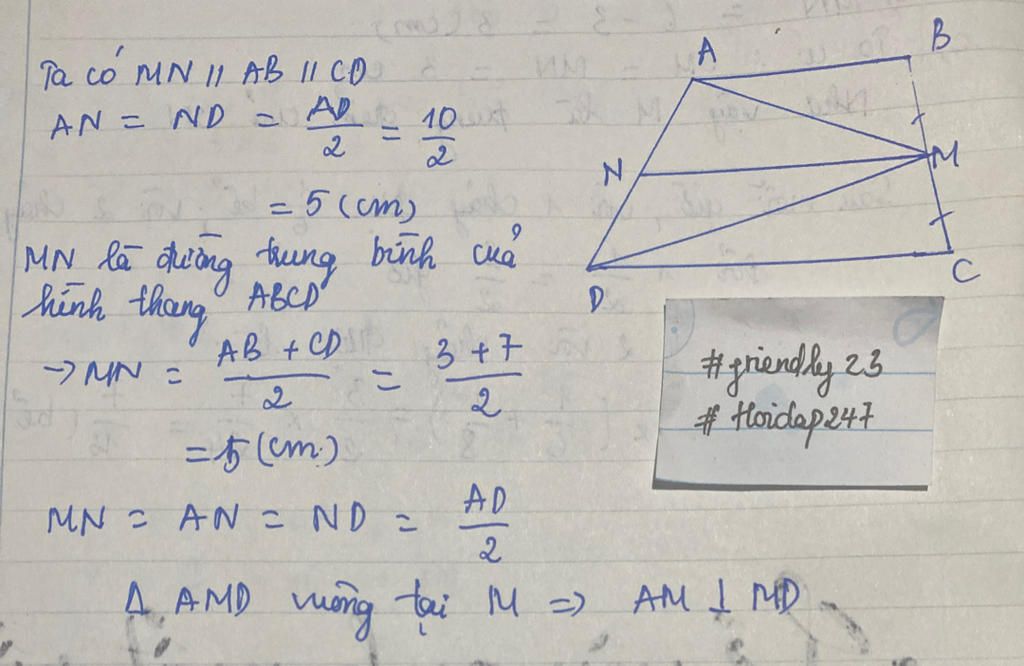 Ta có MN // AB // CD
AN = ND = AD/2 = 10/2
= 5 (cm)
MN là đường trung bình của
hình thang ABCD
→ MN = AB + CD/2 = 3 + 7/2
= 5 (cm)
MN = AN = ND = AD/2
Δ AMD vuông tại M => AM ⊥ MD
A
B
N
M
D
C
#friendly 23
# Hoidap247